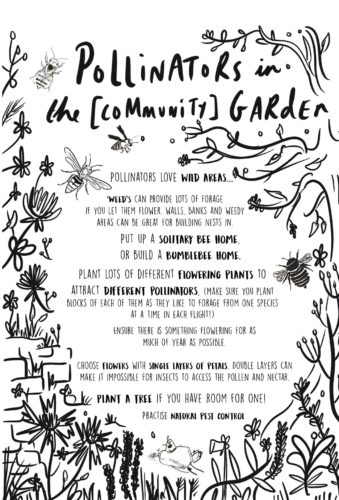 POLLINATORS in
the [COMMUNITY] GARDEN
POLLINATORS LOVE WILD AREAS...
'WEED'S CAN PROVIDE LOTS OF FORAGE
IF YOU LET THEM FLOWER. WALLS, BANKS AND WEEDY
AREAS CAN BE GREAT FOR BUILDING NESTS IN.
PUT UP A SOLITARY BEE HOME,
OR BUILD A BUMBLEBEE HOME.
PLANT LOTS OF DIFFERENT FLOWERING PLANTS TO
ATTRACT DIFFERENT POLLINATORS, (MAKE SURE YOU PLANT
BLOCKS OF EACH OF THEM AS THEY LIKE TO FORAGE FROM ONE SPECIES
AT A TIME IN EACH FLIGHT!)
ENSURE THERE IS SOMETHING FLOWERING FOR AS
MUCH OF YEAR AS POSSIBLE.
CHOOSE FLOWERS WITH SINGLE LAYERS OF PETALS, DOUBLE LAYERS CAN
MAKE IT IMPOSSIBLE FOR INSECTS TO ACCESS THE POLLEN AND NECTAR.
PLANT A TREE IF YOU HAVE ROOM FOR ONE!
PRACTISE NATURAL PEST CONTROL